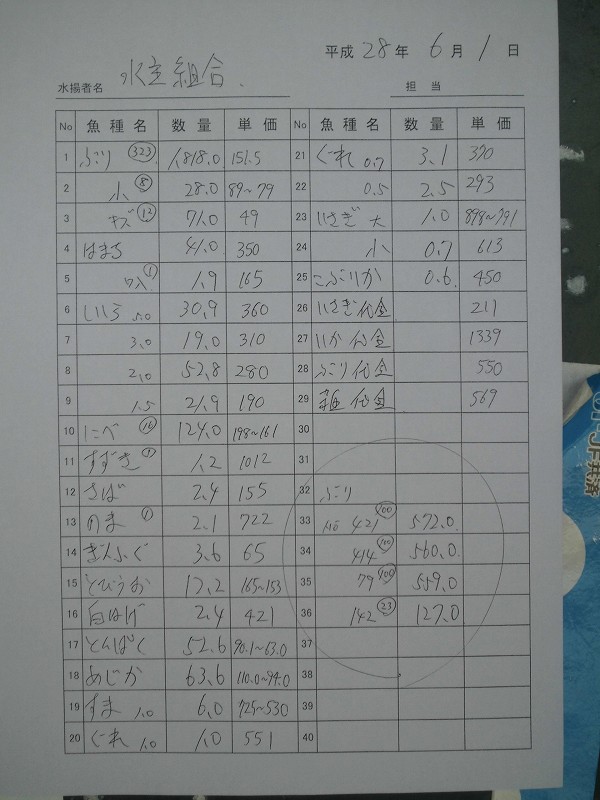 平成 28 年 6 月 1 日
水揚者名 水主組合. 担当
No 魚種名 数量 単価 No 魚種名 数量 単価
1 ぶり (323) 1818.0 151.5 21 ぐれ 0.7 3.1 370
2 小 (8) 28.0 89~79 22 0.5 2.5 293
3 キズ (12) 71.0 49 23 いさぎ 大 1.0 898~791
4 はまち 41.0 350 24 小 0.7 613
5 (1) 1.9 165 25 こぶりか 0.6 450
6 しいら 5.0 30.9 360 26 いさぎ代金 211
7 3.0 19.0 310 27 いか代金 1339
8 2.0 52.8 280 28 ぶり代金 550
9 1.5 21.9 190 29 代金 569
10 にべ (16) 124.0 198~161 30
11 すずき (1) 1.2 1012 31
12 さば 2.4 155 32 ぶり
13 のま (1) 2.1 722 33 No 421 (100) 572.0
14 ぎんふぐ 3.6 65 34 414 (100) 560.0
15 とびうお 13.2 165~153 35 79 (100) 559.0
16 白はげ 2.4 421 36 142 (23) 127.0
17 とんぱく 52.6 90.1~63.0 37
18 めじか 63.6 110.0~94.0 38
19 すま 1.0 6.0 725~530 39
20 ぐれ 1.0 1.0 551 40